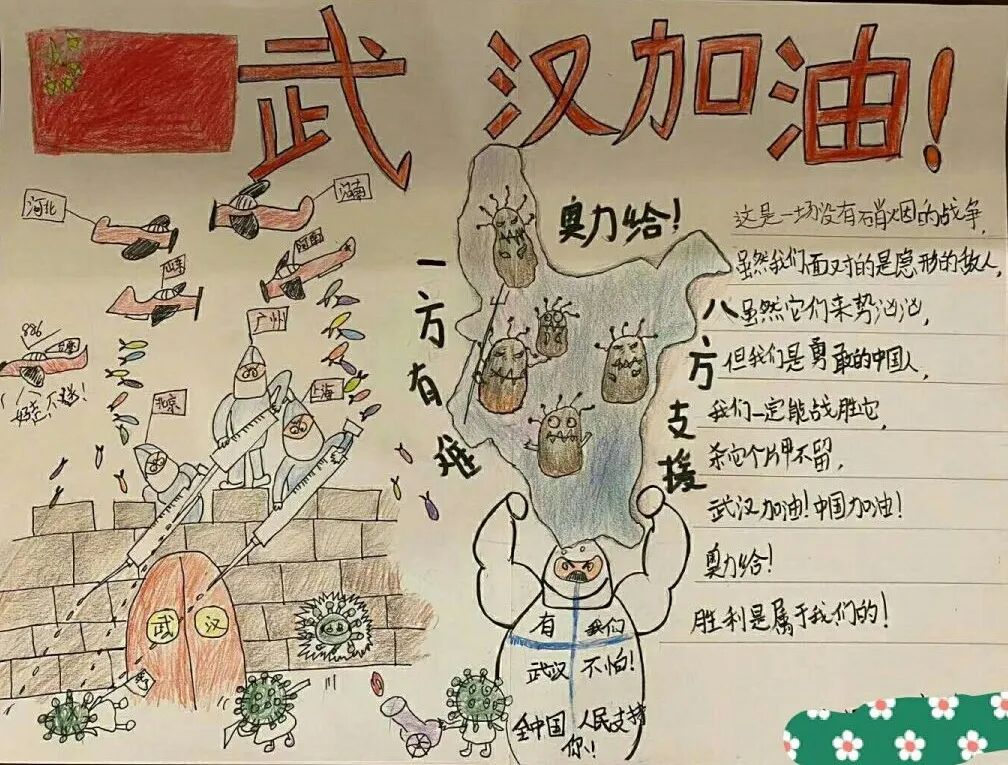 武汉加油!
河北
海南
河南
山东
广州
886
好走不送!
北京
上海
武 汉
奥力给!
一方有难
八方支援
有 我们
武汉 不怕!
全中国 人民支持
你!!
这是一场没有硝烟的战争,
虽然我们面对的是隐形的敌人,
虽然它们来势汹汹,
但我们是勇敢的中国人,
我们一定能战胜它,
杀它个片甲不留,
武汉加油!中国加油!
奥力给!
胜利是属于我们的!